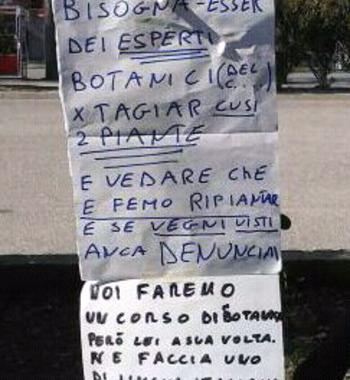 BISOGNA-ESSER
DEI ESPERTI
BOTANICI (DEL
C...)
X TAGIAR CUSI
2 PIANTE
E VEDARE CHE
E FEMO RIPIANTAR
E SE VEGNI VISTI
ANCA DENUNCIAI
NOI FAREMO
UN CORSO DI BOTANICA
PERÒ LEI A SUA VOLTA.
NE FACCIA UNO
DI LINGUA ITALIANA